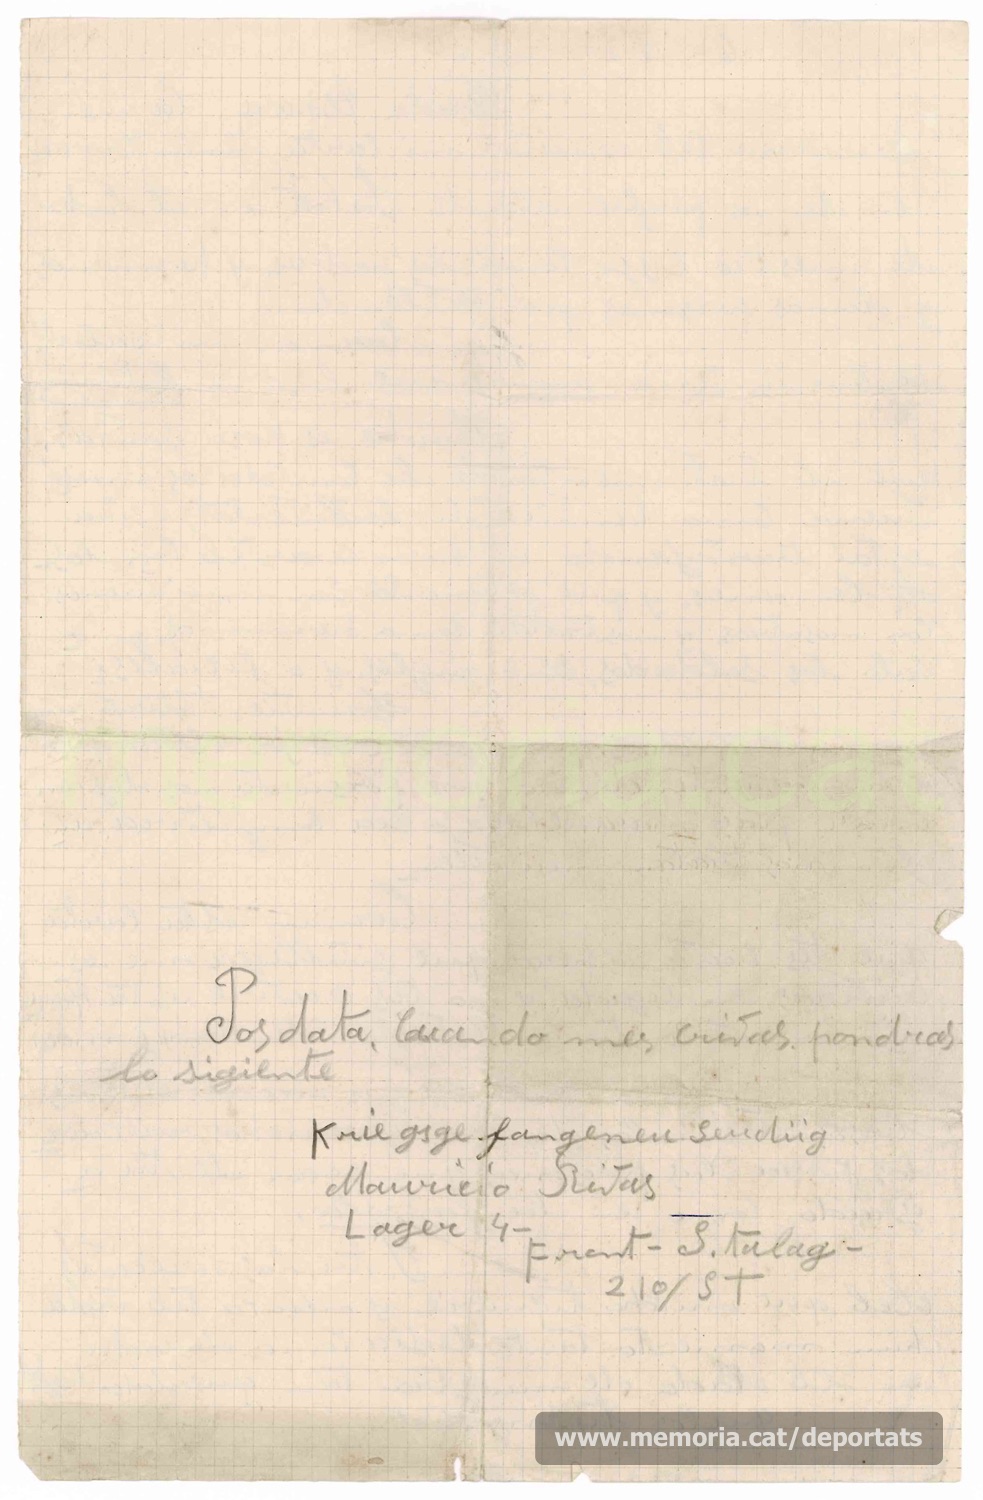 memoria.cat
Posdata, Cuando mes crivas pondras
lo sigiente
Kriegsgefangenen Sendüg
Mauricio Rivas
Lager 4-
Front- S. talag-
210/ST
www.memoria.cat/deportats